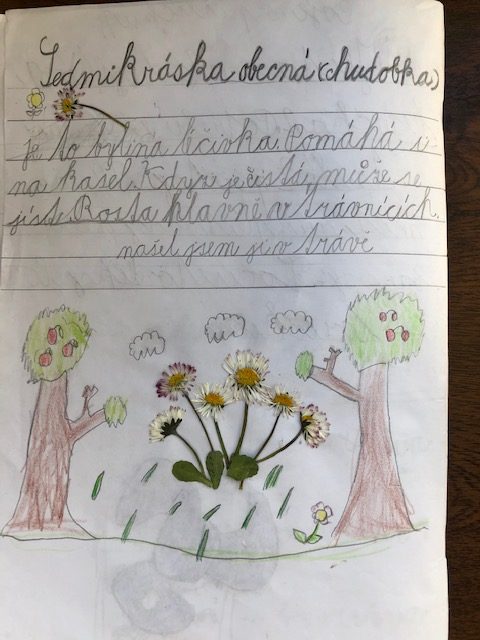 Sedmikráska obecná (chudobka)
je to bylina léčivka. Pomáhá i
na kašel. Když je čistá, může se
jíst. Rosta hlavně v trávnících.
našel jsem ji v trávě